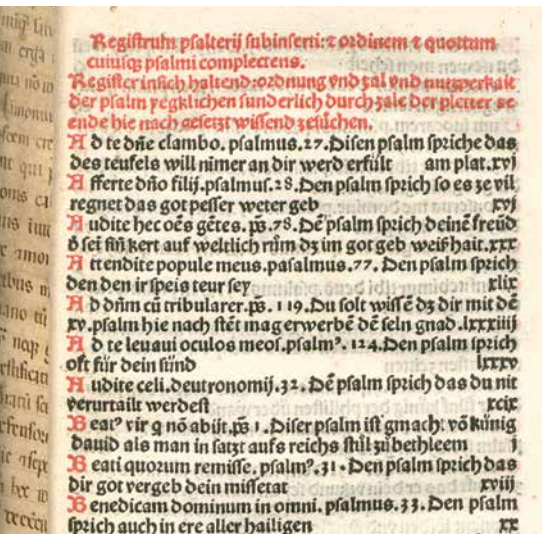 Registrum psalterij subinserti: ⁊ ordinem ⁊ quottum
cuiusqꝫ psalmi complectens.
Register in sich haltend: ordnung vnd zal vnd nutzperkait
der psalm yegklichen sunderlich durch zale der pletter ze
ende hie nach gesetzt wissend zesůchen.
A d te dñe clambo. psalmus. 27. Disen psalm spriche das
des teufels will nimer an dir werd erfült am plat. xvj
A fferte dño filij. psalmus. 28. Den psalm sprich so es ze vil
regnet das got pesser weter geb xvj
A udite hec oẽs gẽtes. p̃s. 78. Dẽ psalm sprich deinẽ freüd
ð sei sin̄ kert auf weltlich rům dz im got geb weißhait. xxx
A ttendite popule meus. pasalmus. 77. Den psalm sprich
den den ir speis teur sey xlix
A d dñm cũ tribularer. p̃s. 119. Du solt wissẽ dz dir mit dẽ
xv. psalm hie nach stẽt mag erwerbẽ dẽ seln gnad. lxxxiiij
A d te leuaui oculos meos. psalmꝰ. 124. Den psalm sprich
oft für dein sünd lxxxv
A udite celi. deutronomij. 32. Dẽ psalm sprich das du nit
verurtailt werdest xcix
B eatꝰ vir q nõ abijt. p̃s 1. Diser psalm ist gmacht võ künig
dauid als man in satzt aufs reichs stůl zů bethleem j
B eati quorum remisse. psalmꝰ. 31. Den psalm sprich das
dir got vergeb dein missetat xviij
B enedicam dominum in omni. psalmus. 33. Den psalm
sprich auch in ere aller hailigen xx